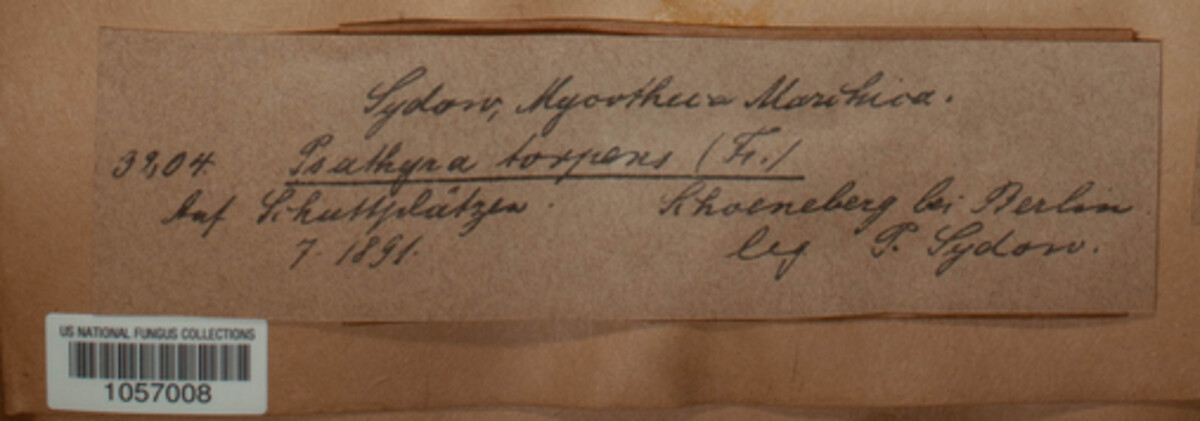 Sydow, Mycotheca Marchica.
3204. Psathyra torpens (Fr.)
Auf Schuttplätzen. Schoeneberg bei Berlin.
7. 1891. leg P. Sydow.
US NATIONAL FUNGUS COLLECTIONS
1057008